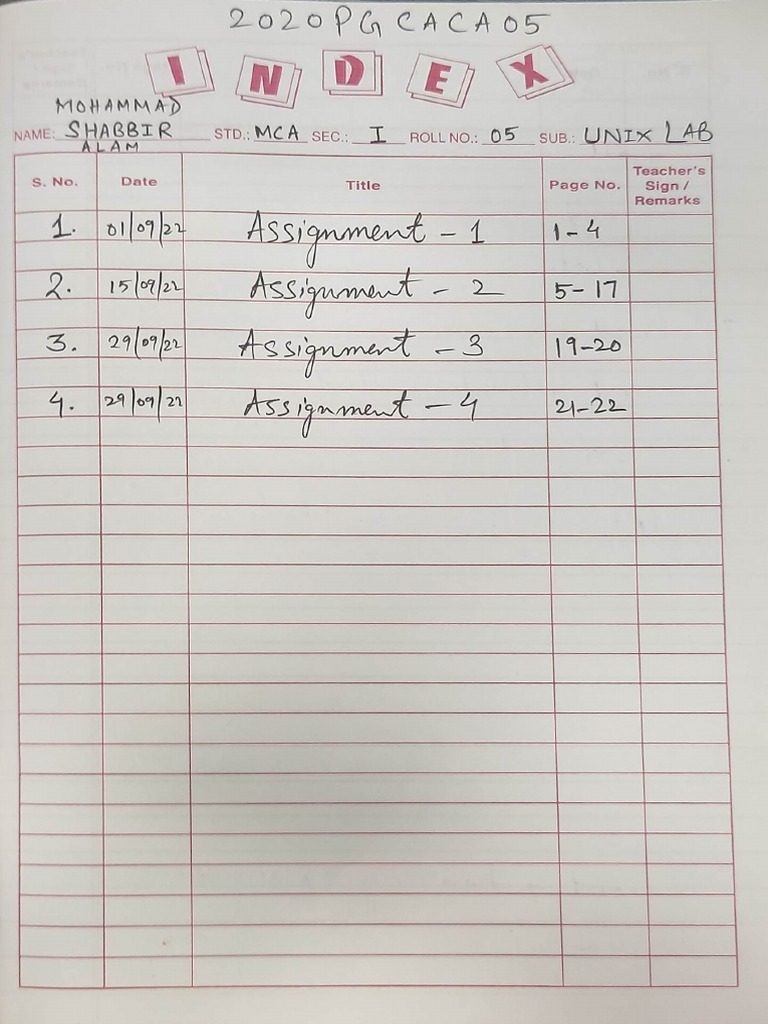 2020PGCACA05
INDEX
MOHAMMAD
NAME: SHABBIR STD.: MCA SEC.: I ROLL NO.: 05 SUB.: UNIX LAB
ALAM
S. No. Date Title Page No. Teacher's Sign / Remarks
1. 01/09/22 Assignment - 1 1-4
2. 15/09/22 Assignment - 2 5-17
3. 29/09/22 Assignment - 3 19-20
4. 29/09/22 Assignment - 4 21-22